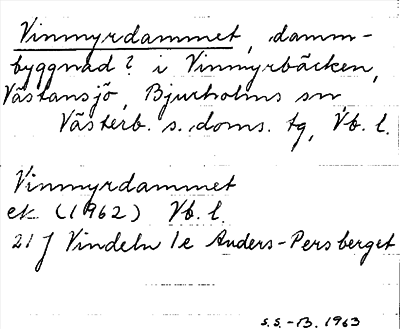 Vinmyrdammet, damm-
byggnad? i Vinmyrbäcken,
Västansjö, Bjurholms sn
Västerb. s. doms. tg, Vb. l.
Vinmyrdammet
ek. (1962) Vb. l.
21 J Vindeln 1e Anders-Persberget
s.s.-B. 1963